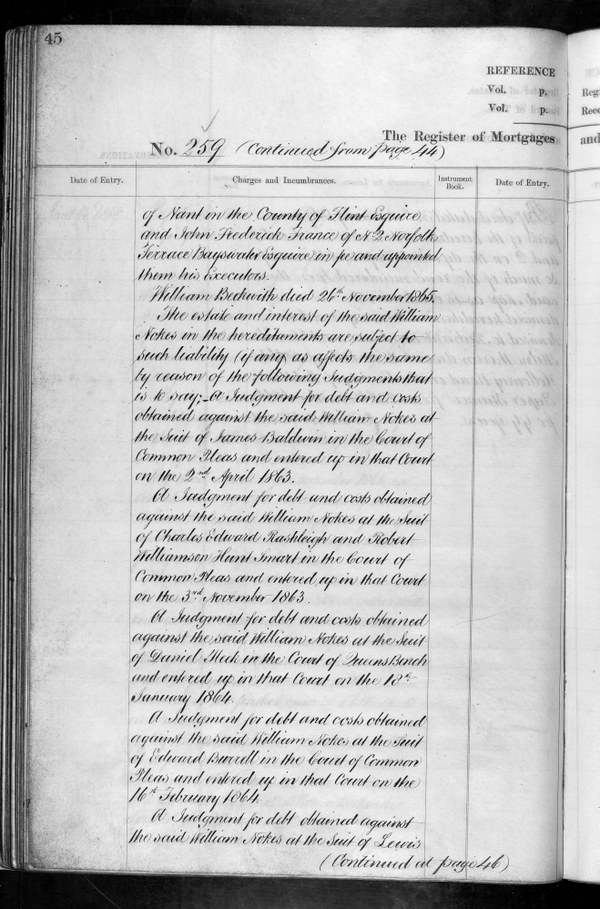 45
REFERENCE
Vol. p.
Vol. p.
The Register of Mortgages
No. 259 (Continued from page 44)
Date of Entry.
Charges and Incumbrances.
Instrument Book.
Date of Entry.
of Nant in the County of Flint Esquire
and John Frederick France of No 2 Norfolk
Terrace Bayswater Esquire in fee and appointed
them his Executors.
William Beckwith died 26th November 1865.
The estate and interest of the said William
Nokes in the hereditaments are subject to
such liability (if any) as affects the same
by reason of the following Judgments that
is to say;- A Judgment for debt and costs
obtained against the said William Nokes at
the Suit of James Baldwin in the Court of
Common Pleas and entered up in that Court
on the 2nd April 1863.
A Judgment for debt and costs obtained
against the said William Nokes at the Suit
of Charles Edward Rashleigh and Robert
Williamson Hunt Smart in the Court of
Common Pleas and entered up in that Court
on the 3rd November 1863.
A Judgment for debt and costs obtained
against the said William Nokes at the Suit
of Daniel in the Court of Queens Bench
and entered up in that Court on the
January 1864.
A Judgment for debt and costs obtained
against the said William Nokes at the Suit
of Edward Burrell in the Court of Common
Pleas and entered up in that Court on the
16th February 1864.
A Judgment for debt obtained against
the said William Nokes at the Suit of Lewis
(Continued at page 46)
and